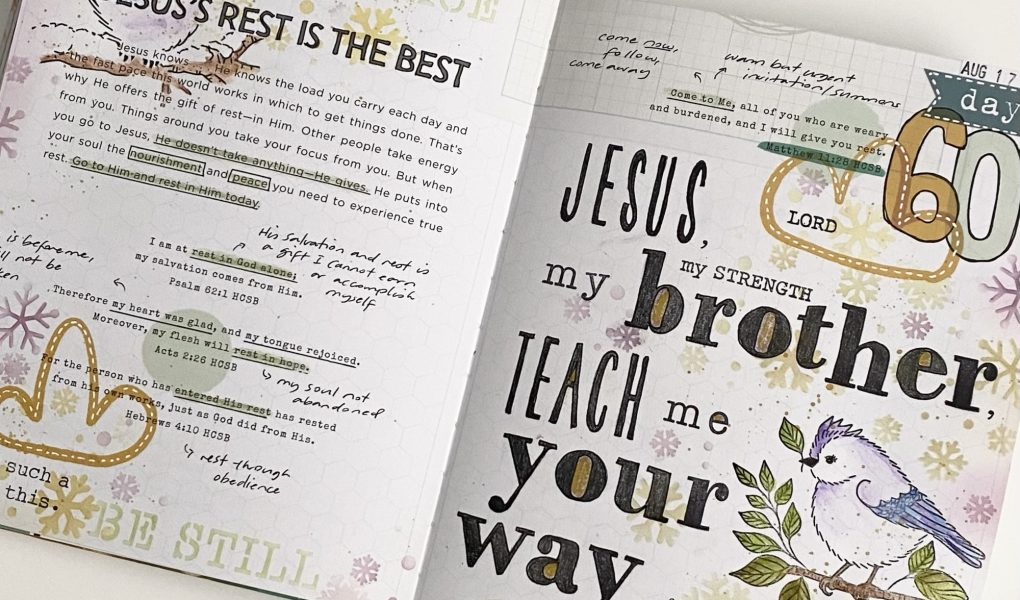 JESUS'S REST IS THE BEST
Jesus knows He knows the load you carry each day and
the fast pace this world works in which to get things done. That's
why He offers the gift of rest—in Him. Other people take energy
from you. Things around you take your focus from you. But when
you go to Jesus, He doesn't take anything—He gives. He puts into
your soul the nourishment and peace you need to experience true
rest. Go to Him and rest in Him today.
His salvation and rest is
a gift I cannot earn
or accomplish
myself
is before me,
not be
I am at rest in God alone;
my salvation comes from Him.
Psalm 62:1 HCSB
Therefore my heart was glad, and my tongue rejoiced.
Moreover, my flesh will rest in hope.
Acts 2:26 HCSB
my soul not
abandoned
For the person who has entered His rest has rested
from his own works, just as God did from His.
Hebrews 4:10 HCSB
rest through
obedience
such a
this.
BE STILL
come now,
follow,
come away
warm but urgent
invitation/summons
Come to Me, all of you who are weary
and burdened, and I will give you rest.
Matthew 11:28 HCSB
AUG 17
day
60
LORD
JESUS,
my STRENGTH
my brother,
TEACH me
your
way